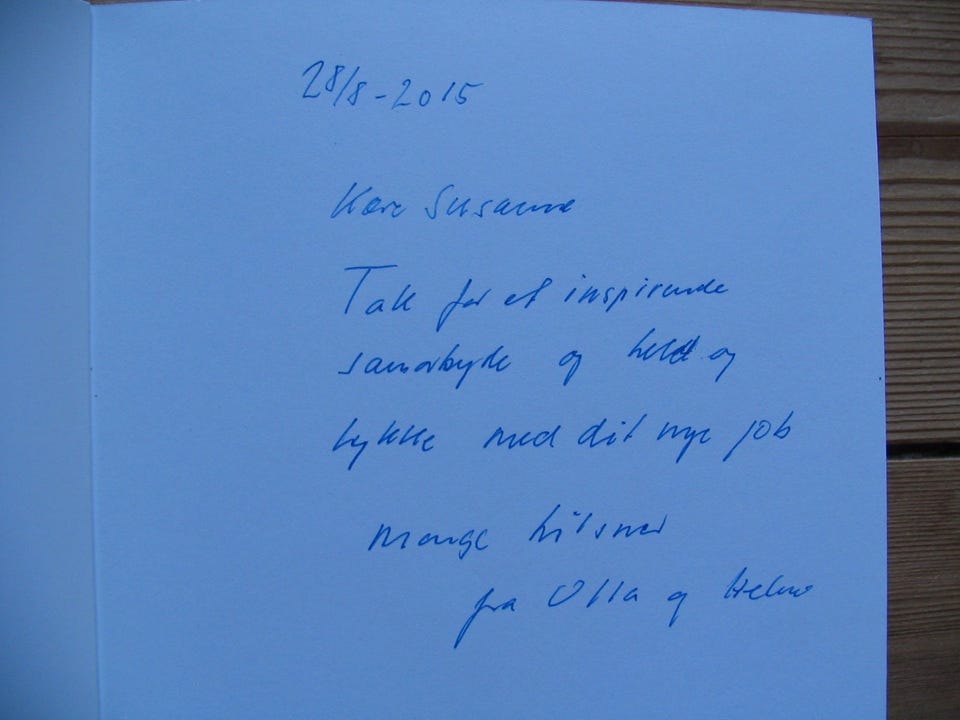 28/8-2015
Kære Susanne
Tak for et inspirerende
samarbejde og held og
lykke med dit nye job
Mange hilsner
fra Ulla og Helene